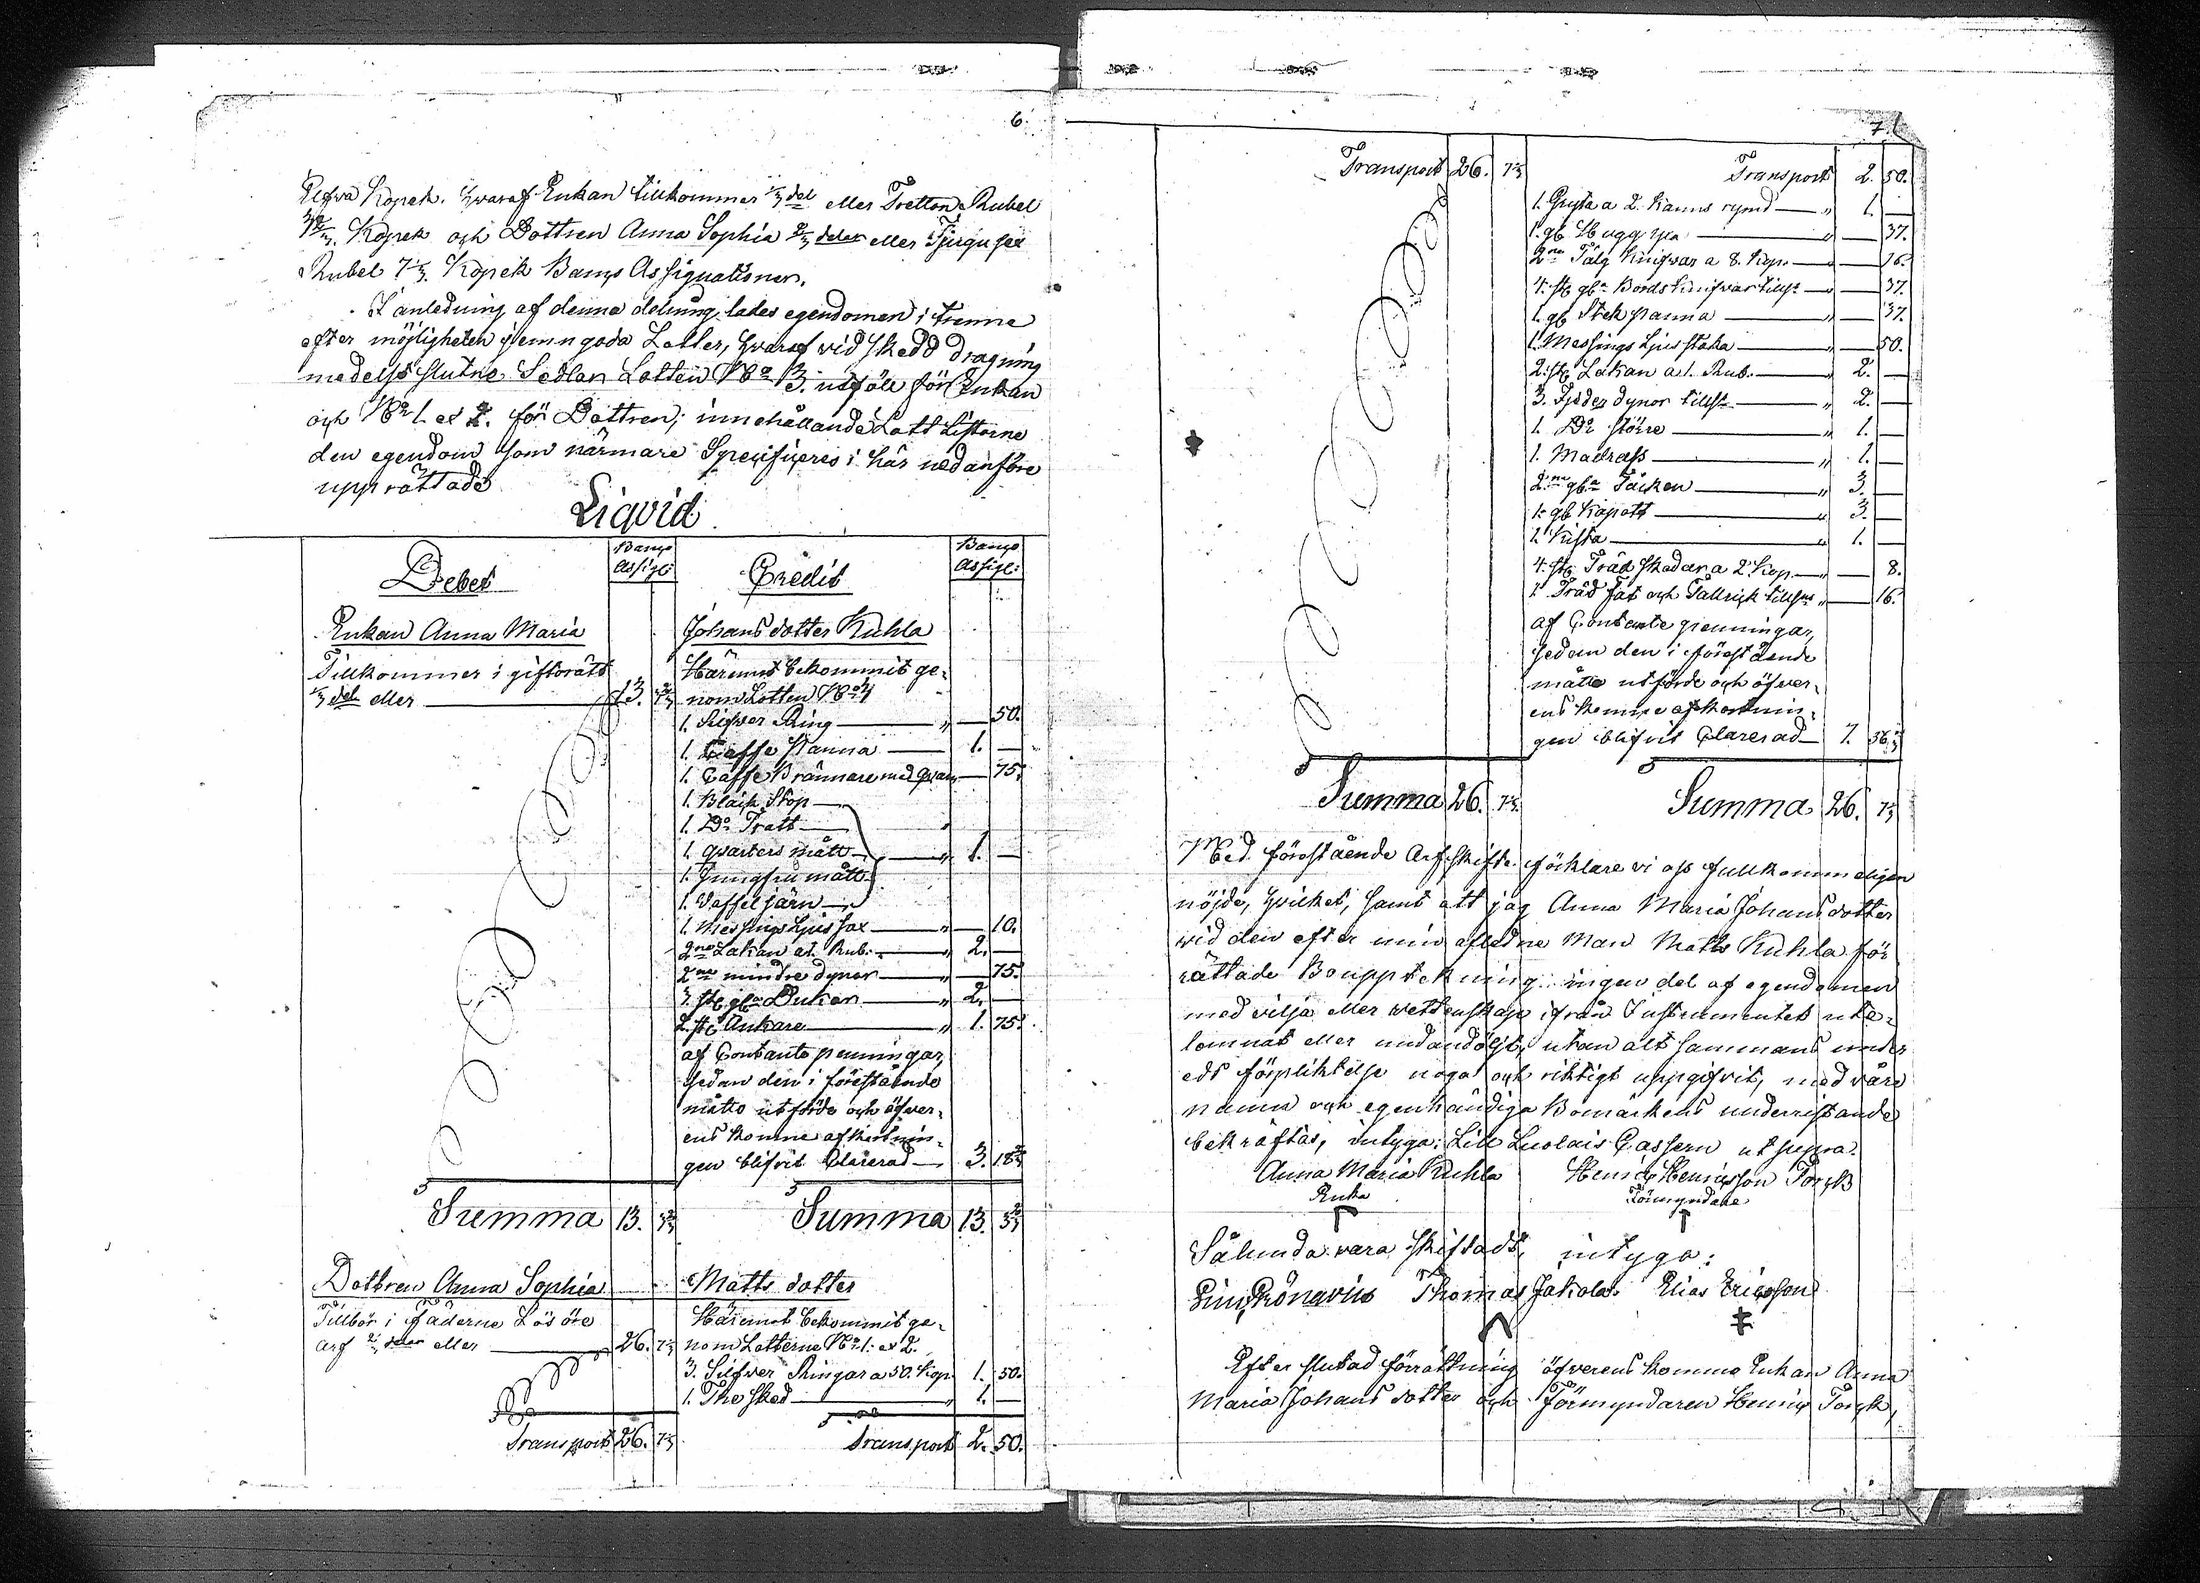 6.
Elfva Kopek. hvaraf Enkan tillkommer 1/3 del eller Tretton Rubel
3 2/3 Kopek och Dottren Anna Sophia 2/3 delar eller Tjugusex
Rubel 7 1/3 Kopek Banco Assignationer.
I anledning af denna delning lades egendomen i trenne
efter möjligheten jemngoda Lotter, hvaraf vid skedd dragning
medelst slutne Sedlar Lotten No 3. utföll för Enkan
och No 1. et 2. för Dottren; innehållande Lott Listorne
den egendom som närmare Specificeras i här nedanföre
upprättade
Liqvid.
Debet
Banco Assign:
Credit
Banco Assign:
Enkan Anna Maria
Johans dotter Kuhla
Tillkommer i giftorätt
1/3 del eller 13. 3 2/3
Häremot bekommit ge-
nom Lotten No 3
1. Silfver Ring " — 50.
1. Caffe Kanna — 1. —
1. Caffe Brännare med qvarn — 75.
1. Bläck Stop
1. Do Tratt
1. qvarters mått " 1. —
1. Jungfru mått
1. Vaffel järn
1. Messings Ljus sax " — 10.
2ne Lakan a 1. Rub. " 2. —
2ne mindre dynor " — 75.
3. st. gla Dukar " 2. —
2. st. Ankare " 1. 75.
af Contante penningar,
sedan den i förestående
måtto utförde och öfver-
ens komne afkortnin-
gen blifvit Clarerad 3. 18 2/3
Summa 13. 3 2/3
Summa 13. 3 2/3
Dottren Anna Sophia
Matts dotter
Tillbör i Fäderne Lösöre
arf 2/3 delar eller 26. 7 1/3
Häremot bekommit ge-
nom Lotterne No 1. et 2.
3. Silfver Ringar a 50. Kop. 1. 50.
1. The Sked " 1. —
Transport 26. 7 1/3
Transport 2. 50.
7.
Transport 26. 7 1/3
Transport 2. 50.
1. Gryta a 2. Kanns rymd " 1. —
1. gl. Hugg yxa " — 37.
2ne Tälg Knifvar a 8. Kop. " — 16.
4. st. gla Bords Knifvar tills. " — 37.
1. gl. Stek panna " — 37.
1. Messings Ljus staka " — 50.
2. st. Lakan a 1. Rub. " 2. —
3. Fjäder dynor tills. " 2. —
1. Do större " 1. —
1. Madrass " 1. —
2ne gla Täcken " 3. —
1. gl. Kapott " 3. —
1. Kista " 1. —
4. st. Träd skedar a 2. Kop. " — 8.
1. Träd fat och Tallrick tills. " — 16.
af Contante penningar,
sedan den i förestående
måtto utförde och öfver-
ens komne afkortnin-
gen blifvit Clarerad 7. 36 1/3
Summa 26. 7 1/3
Summa 26. 7 1/3
Med förestående Arfskifte förklare vi oss fullkommeligen
nöjde, hvilket, samt att jag Anna Maria Johans dotter
vid den efter min afledne Man Matts Kuhla för
rättade Bouppteckning ingen del af egendomen
med vilja eller vettenskap ifrån Instrumentet ute-
lemnat eller undandöljt, utan alt sammans under
eds förpliktelse noga och riktigt uppgifvit, med våre
namn och egenhändiga Bomärkens underristande
bekräftas, intyga: Lill Luolais Gassern ut supra.
Anna Maria Kuhla
Enka
Henric Henricsson Torck
Förmyndare
Sålunda vara skiftadt, intyga:
Thomas Jakola. Elias Ericsson
Efter slutad förrättning öfverens kommo Enkan Anna
Maria Johans dotter och Förmyndaren Henric Torck,